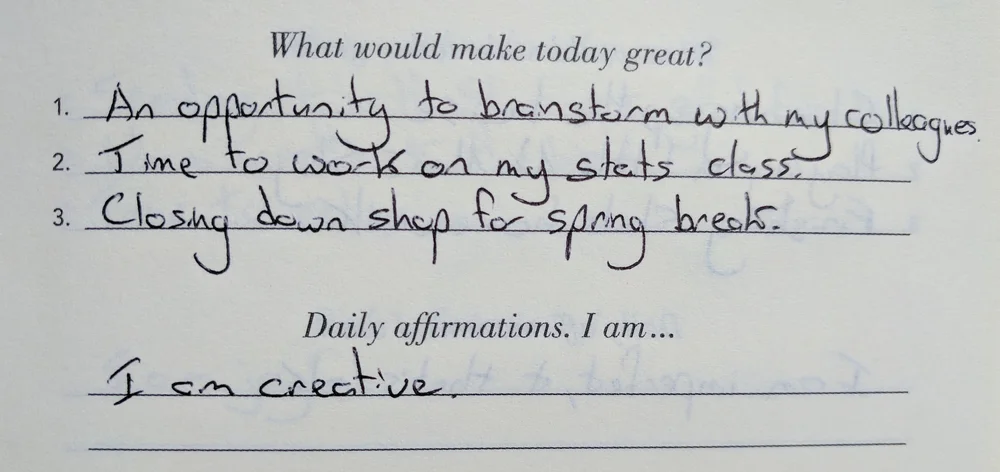 What would make today great?
1. An opportunity to brainstorm with my colleagues.
2. Time to work on my stats class.
3. Closing down shop for spring break.
Daily affirmations. I am...
I am creative.